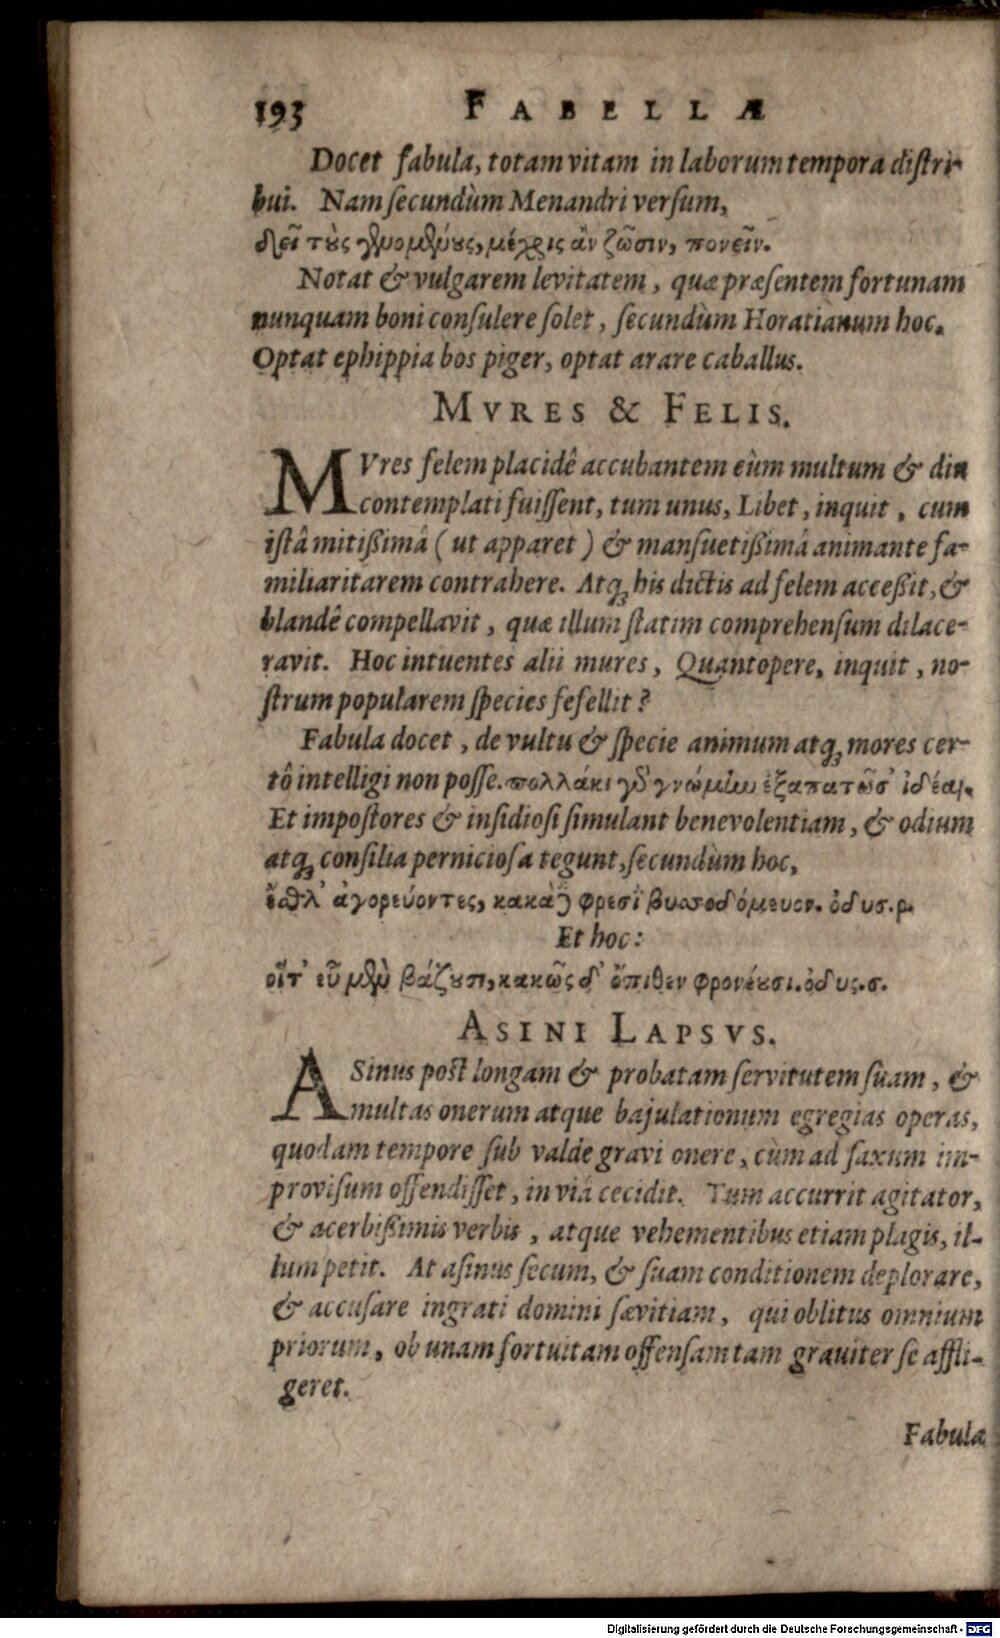 193 FABELLÆ
Docet fabula, totam vitam in laborum tempora distri-
bui. Nam secundùm Menandri versum,
δεῖ τοὺς γενομένους, μέχρις ἂν ζῶσιν, πονεῖν.
Notat & vulgarem levitatem, quæ præsentem fortunam
nunquam boni consulere solet, secundùm Horatianum hoc.
Optat ephippia bos piger, optat arare caballus.
MVRES & FELIS.
MVres felem placidê accubantem eùm multum & diu
contemplati fuissent, tum unus, Libet, inquit, cum
istâ mitißimâ (ut apparet) & mansuetißimâ animante fa-
miliaritarem contrahere. Atq; his dictis ad felem acceßit, &
blandê compellavit, quæ illum statim comprehensum dilace-
ravit. Hoc intuentes alii mures, Quantopere, inquit, no-
strum popularem species fefellit?
Fabula docet, de vultu & specie animum atq; mores cer-
tô intelligi non posse. πολλάκι γὸ γνώμην ἐξαπατῶσ' ἰδέαι.
Et impostores & insidiosi simulant benevolentiam, & odium
atq; consilia perniciosa tegunt, secundùm hoc,
ἔσθλ' ἀγορεύοντες, κακὰ δὲ φρεσὶ βυσσοδόμευον. ὀδυσ. ρ.
Et hoc:
οἵτ' εὖ μὲν βάζουσι, κακῶς δ' ὄπιθεν φρονέουσι. ὀδυς. σ.
ASINI LAPSVS.
ASinus post longam & probatam servitutem suam, &
multas onerum atque bajulationum egregias operas,
quodam tempore sub valde gravi onere, cùm ad saxum im-
provisum offendisset, in viâ cecidit. Tum accurrit agitator,
& acerbißimis verbis, atque vehementibus etiam plagis, il-
lum petit. At asinus secum, & suam conditionem deplorare,
& accusare ingrati domini sævitiam, qui oblitus omnium
priorum, ob unam fortuitam offensam tam grauiter se affli-
geret.
Fabula
Digitalisierung gefördert durch die Deutsche Forschungsgemeinschaft - DFG